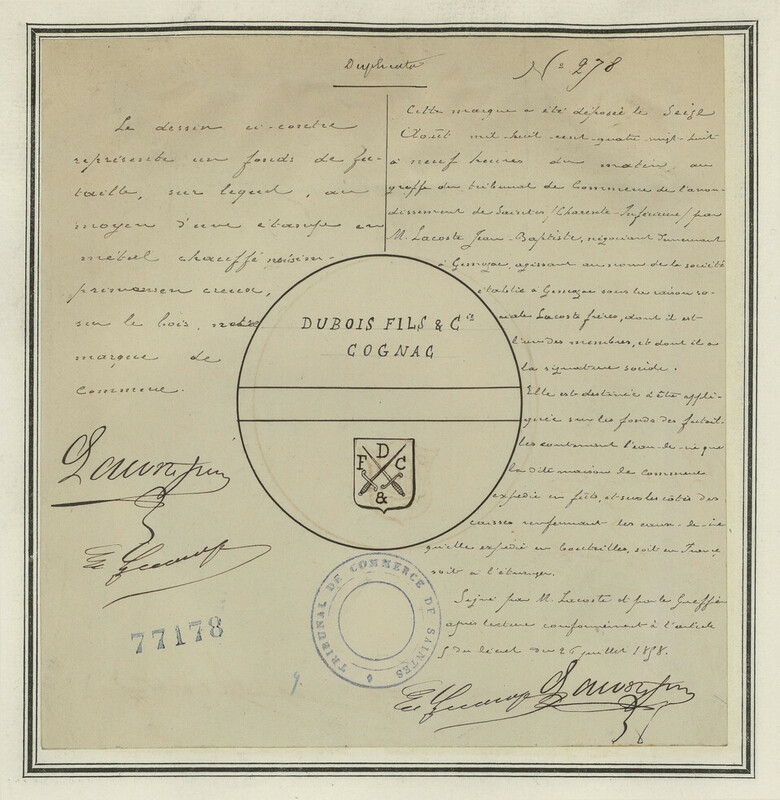 Duplicata
N° 278
Le dessin ci-contre
représente un fonds de fu-
taille, sur lequel, au
moyen d'une étampe en
métal chauffé, nous im-
primons en creux,
sur le bois, notre
marque de
commerce.
Cette marque a été déposée le Seize
Août mil huit cent quatre vingt huit
à neuf heures du matin, au
greffe du tribunal de Commerce de l'arron-
dissement de Saintes (Charente Inférieure) par
M. Lacoste Jean-Baptiste, négociant demeurant
à Gemozac, agissant au nom de la société
établie à Gemozac sous la raison so-
ciale Lacoste frères, dont il est
l'un des membres, et dont il a
la signature sociale.
Elle est destinée à être appli-
quée sur les fonds des futail-
les contenant l'eau-de-vie que
la dite maison de commerce
expédie en fûts, et sur les côtés des
caisses renfermant les eaux-de-vie
qu'elle expédie en bouteilles, soit en France
soit à l'étranger.
Signé par M. Lacoste et par le Greffier
après lecture conformément à l'article
5 du décret du 26 juillet 1858.
DUBOIS FILS & Cie
COGNAC
F D C
&
77178
TRIBUNAL DE COMMERCE DE SAINTES
9.